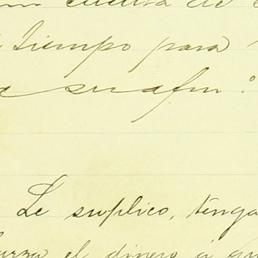 cuenta de
tiempo para
a su afm
Le suplico, tenga
el dinero a